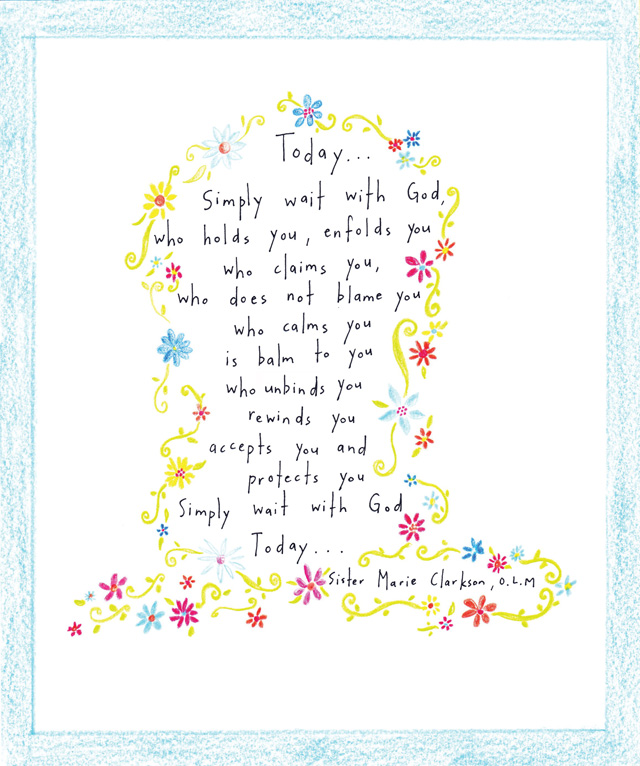 Today...
Simply wait with God,
who holds you, enfolds you
who claims you,
who does not blame you
who calms you
is balm to you
who unbinds you
rewinds you
accepts you and
protects you
Simply wait with God
Today...
Sister Marie Clarkson, O.L.M